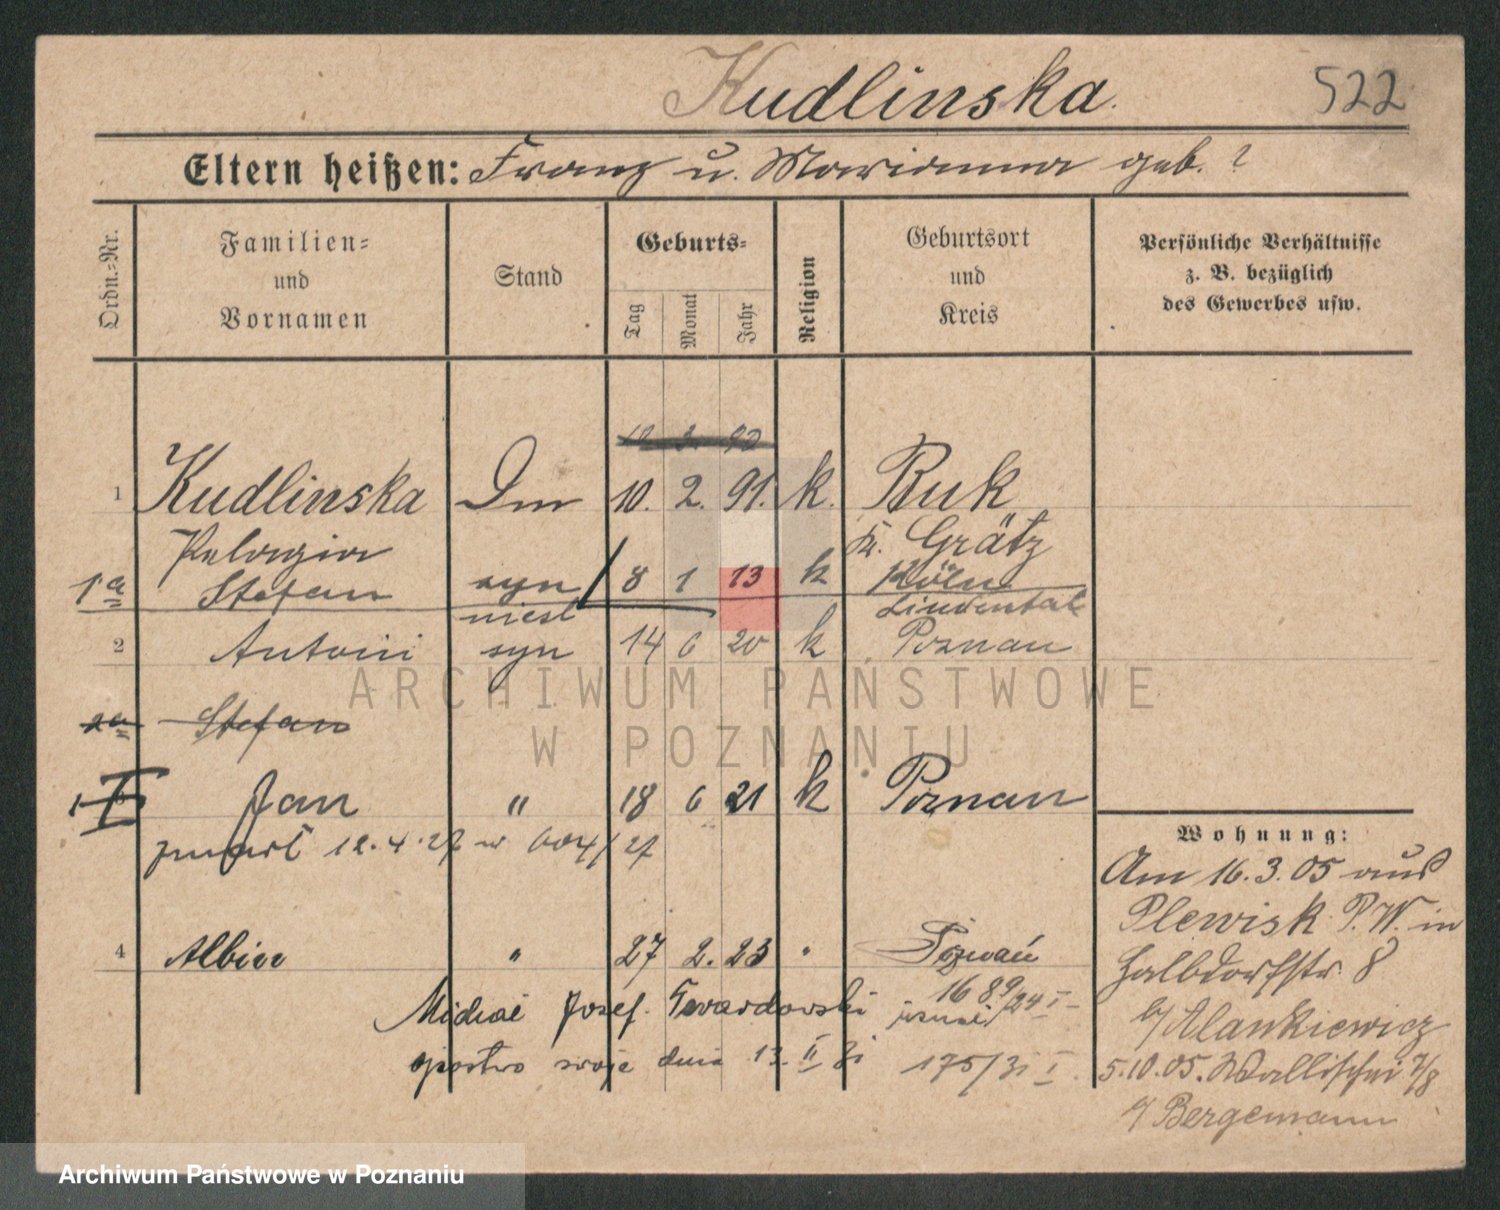 Kudlinska
522
Eltern heißen: Franz u. Marianna geb. ?
Ordn.=Nr.
Familien=
und
Vornamen
Stand
Geburts=
Tag
Monat
Jahr
Religion
Geburtsort
und
Kreis
Persönliche Verhältnisse
z. B. bezüglich
des Gewerbes usw.
1 Kudlinska 10. 2. 91. k. Buk
Pelagia Kr. Grätz
1a Stefan syn 8 1 13 k Köln
nieśl Lindental
2 Antoni syn 14 6 20 k Poznan
2a Stefan
Jan " 18 6 21 k Poznan
zmarł 12.4.27 w 604/27
4 Albin " 27 2. 23 " Poznań
Michał Josef Twardowski 1689/24 I
ojcostwo swoje dnia 13. II 31 175/31 I
Wohnung:
Am 16.3.05 aus
Plewisk P.W. in
Halbdorfstr. 8
b/ Alankiewicz
5.10.05. Wallischei 7/8
b/ Bergemann
ARCHIWUM PAŃSTWOWE
W POZNANIU
Archiwum Państwowe w Poznaniu